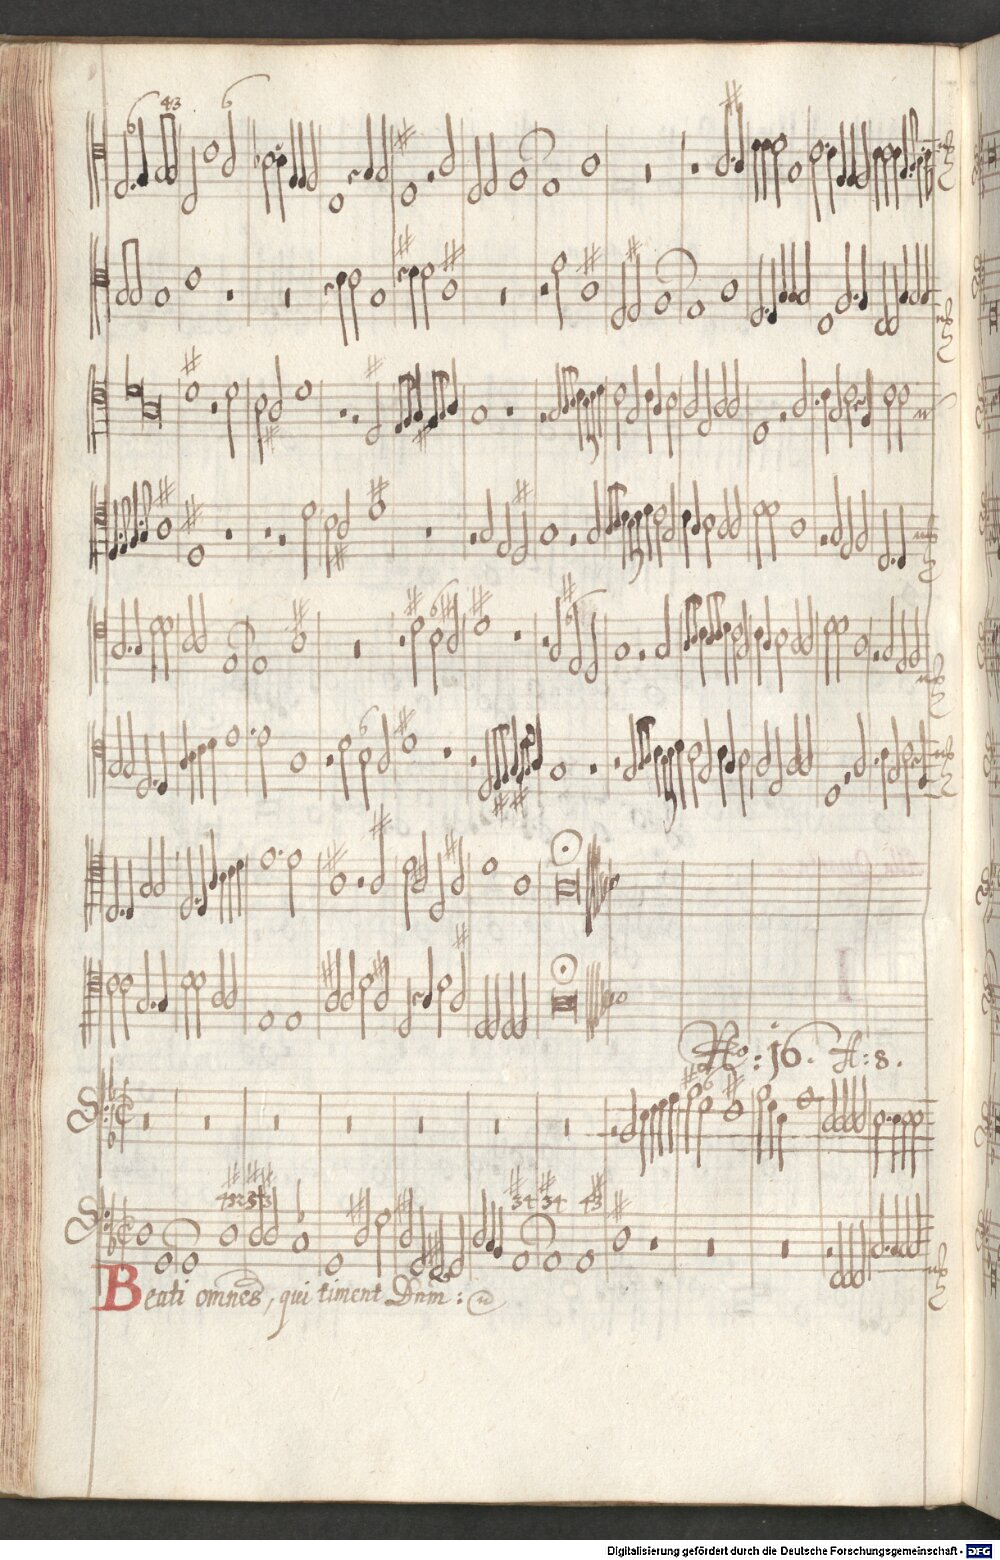 43
6
6
6
6
6
No: 16. A: 8.
6
43
34
34
43
Beati omnes, qui timent Dnm:
Digitalisierung gefördert durch die Deutsche Forschungsgemeinschaft - DFG